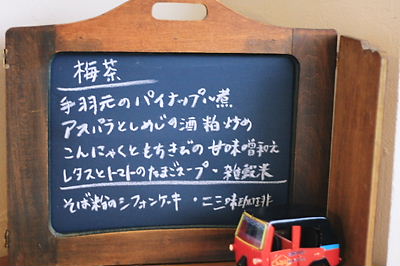 梅茶
手羽元のパイナップル煮
アスパラとしめじの酒粕炒め
こんにゃくともちきびの甘味噌和え
レタスとトマトのたまごスープ・雑穀米
そば粉のシフォンケーキ・二三味珈琲